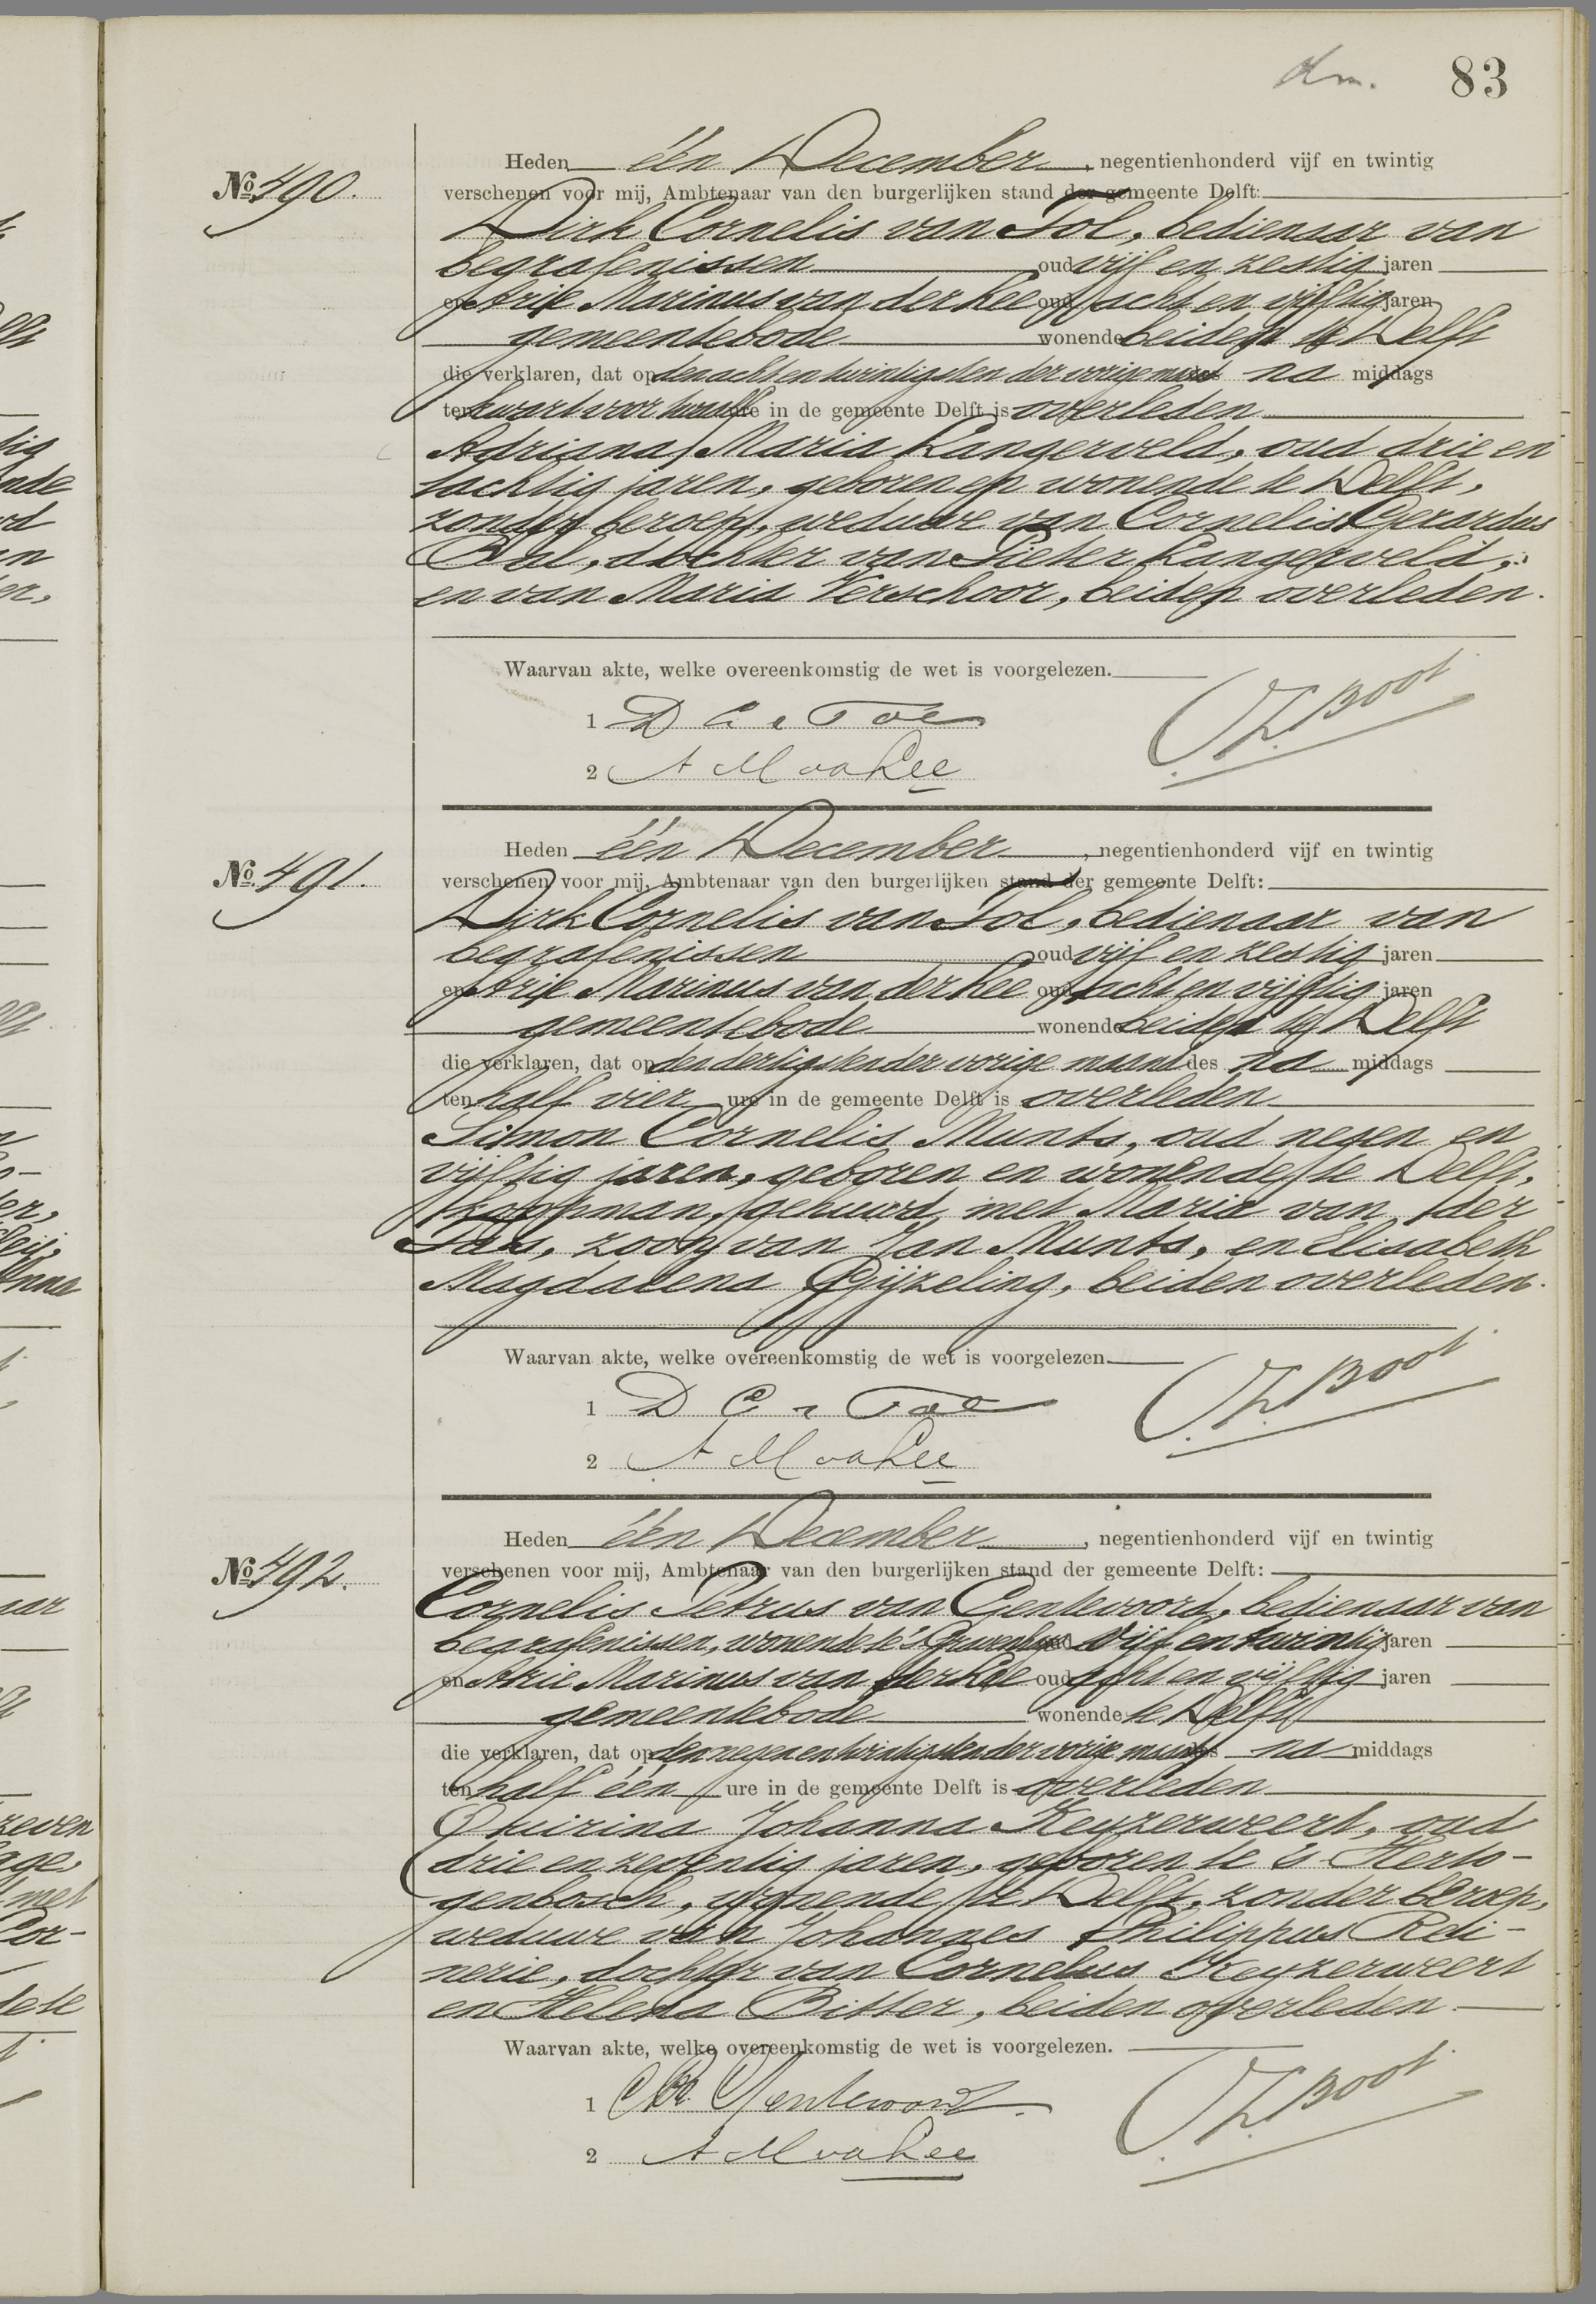 dm. 83
Nº 490.
Heden één December, negentienhonderd vijf en twintig
verschenen voor mij, Ambtenaar van den burgerlijken stand der gemeente Delft:
Dirk Cornelis van Tol, bedienaar van
begrafenissen oud vijf en zestig jaren
en Arije Marinus van der Lee oud acht en vijftig jaren
gemeentebode wonende beiden te Delft
die verklaren, dat op den acht en twintigsten der vorige maand des na middags
ten kwart voor twaalf ure in de gemeente Delft is overleden
Adriana Maria Langerveld, oud drie en
tachtig jaren, geboren en wonende te Delft,
zonder beroep, weduwe van Cornelis Gerardus
Bal, dochter van Pieter Langerveld,
en van Maria Verschoor, beiden overleden.
Waarvan akte, welke overeenkomstig de wet is voorgelezen.
1 D C v Tol
2 A M vd Lee
Nº 491.
Heden één December, negentienhonderd vijf en twintig
verschenen voor mij, Ambtenaar van den burgerlijken stand der gemeente Delft:
Dirk Cornelis van Tol, bedienaar van
begrafenissen oud vijf en zestig jaren
en Arije Marinus van der Lee oud acht en vijftig jaren
gemeentebode wonende beiden te Delft
die verklaren, dat op den dertigsten der vorige maand des na middags
ten half vier ure in de gemeente Delft is overleden
Simon Cornelis Munts, oud negen en
vijftig jaren, geboren en wonende te Delft,
koopman, gehuwd met Maria van der
Tas, zoon van Jan Munts, en Elisabeth
Magdalena Gijzeling, beiden overleden.
Waarvan akte, welke overeenkomstig de wet is voorgelezen.
1 D C v Tol
2 A M vd Lee
Nº 492.
Heden één December, negentienhonderd vijf en twintig
verschenen voor mij, Ambtenaar van den burgerlijken stand der gemeente Delft:
Cornelis Petrus van Gentevoort, bedienaar van
begrafenissen, wonende te 's Gravenhage oud vijf en twintig jaren
en Arie Marinus van der Lee oud acht en vijftig jaren
gemeentebode wonende te Delft
die verklaren, dat op den negen en twintigsten der vorige maand des na middags
ten half één ure in de gemeente Delft is overleden
Quirina Johanna Keyzerweert, oud
drie en zeventig jaren, geboren te 's Herto-
genbosch, wonende te Delft, zonder beroep,
weduwe van Johannes Philippus Redi-
nerie, dochter van Cornelus Keyzerweert
en Helena Bitter, beiden overleden
Waarvan akte, welke overeenkomstig de wet is voorgelezen.
1 Gentewoort
2 A M vd Lee